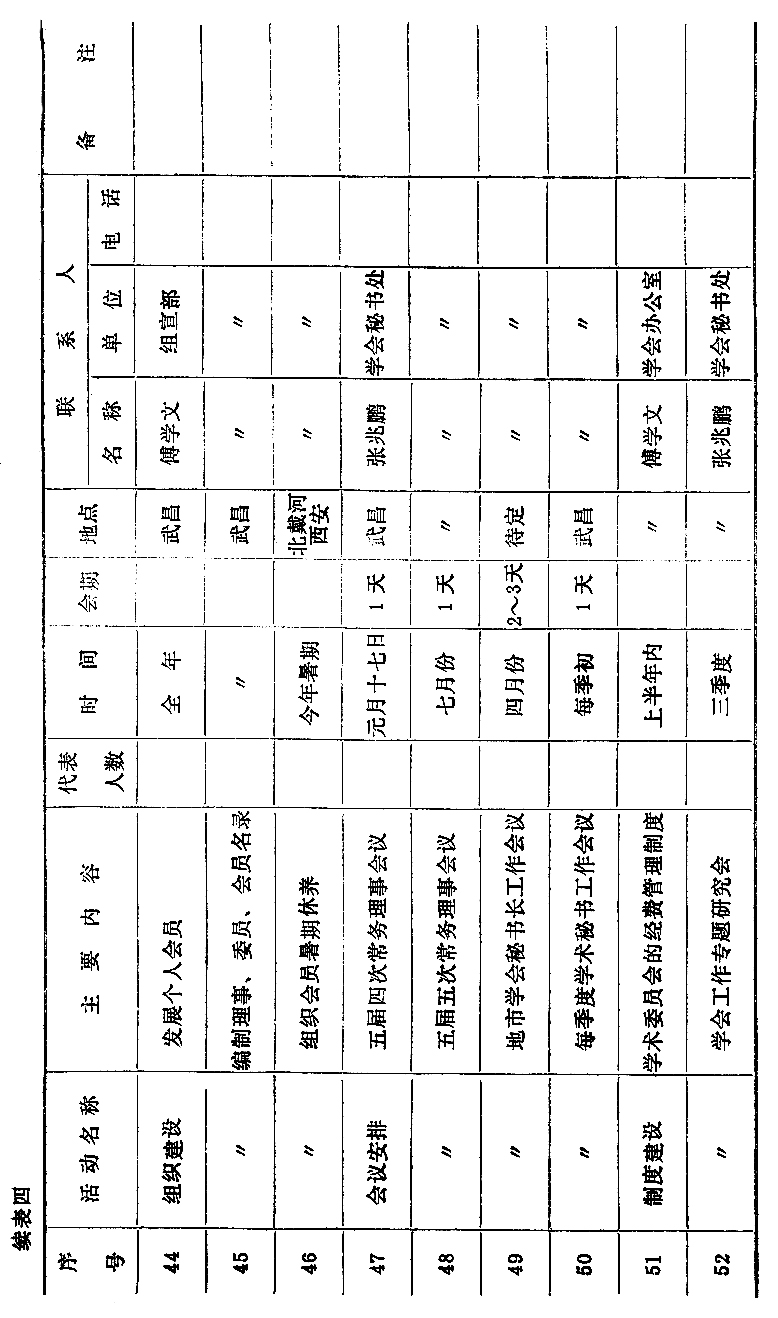 续表四
序号 活动名称 主要内容 代表人数 时间 会期 地点 联系人 备注
名称 单位 电话
44 组织建设 发展个人会员 全年 武昌 傅学文 组宣部
45 〃 编制理事、委员、会员名录 〃 武昌 〃 〃
46 〃 组织会员暑期休养 今年暑期 北戴河 西安 〃 〃
47 会议安排 五届四次常务理事会议 元月十七日 1天 武昌 张兆鹏 学会秘书处
48 〃 五届五次常务理事会议 七月份 1天 〃 〃 〃
49 〃 地市学会秘书长工作会议 四月份 2～3天 待定 〃 〃
50 〃 每季度学术秘书工作会议 每季初 1天 武昌 〃 〃
51 制度建设 学术委员会的经费管理制度 上半年内 〃 傅学文 学会办公室
52 〃 学会工作专题研究会 三季度 〃 张兆鹏 学会秘书处